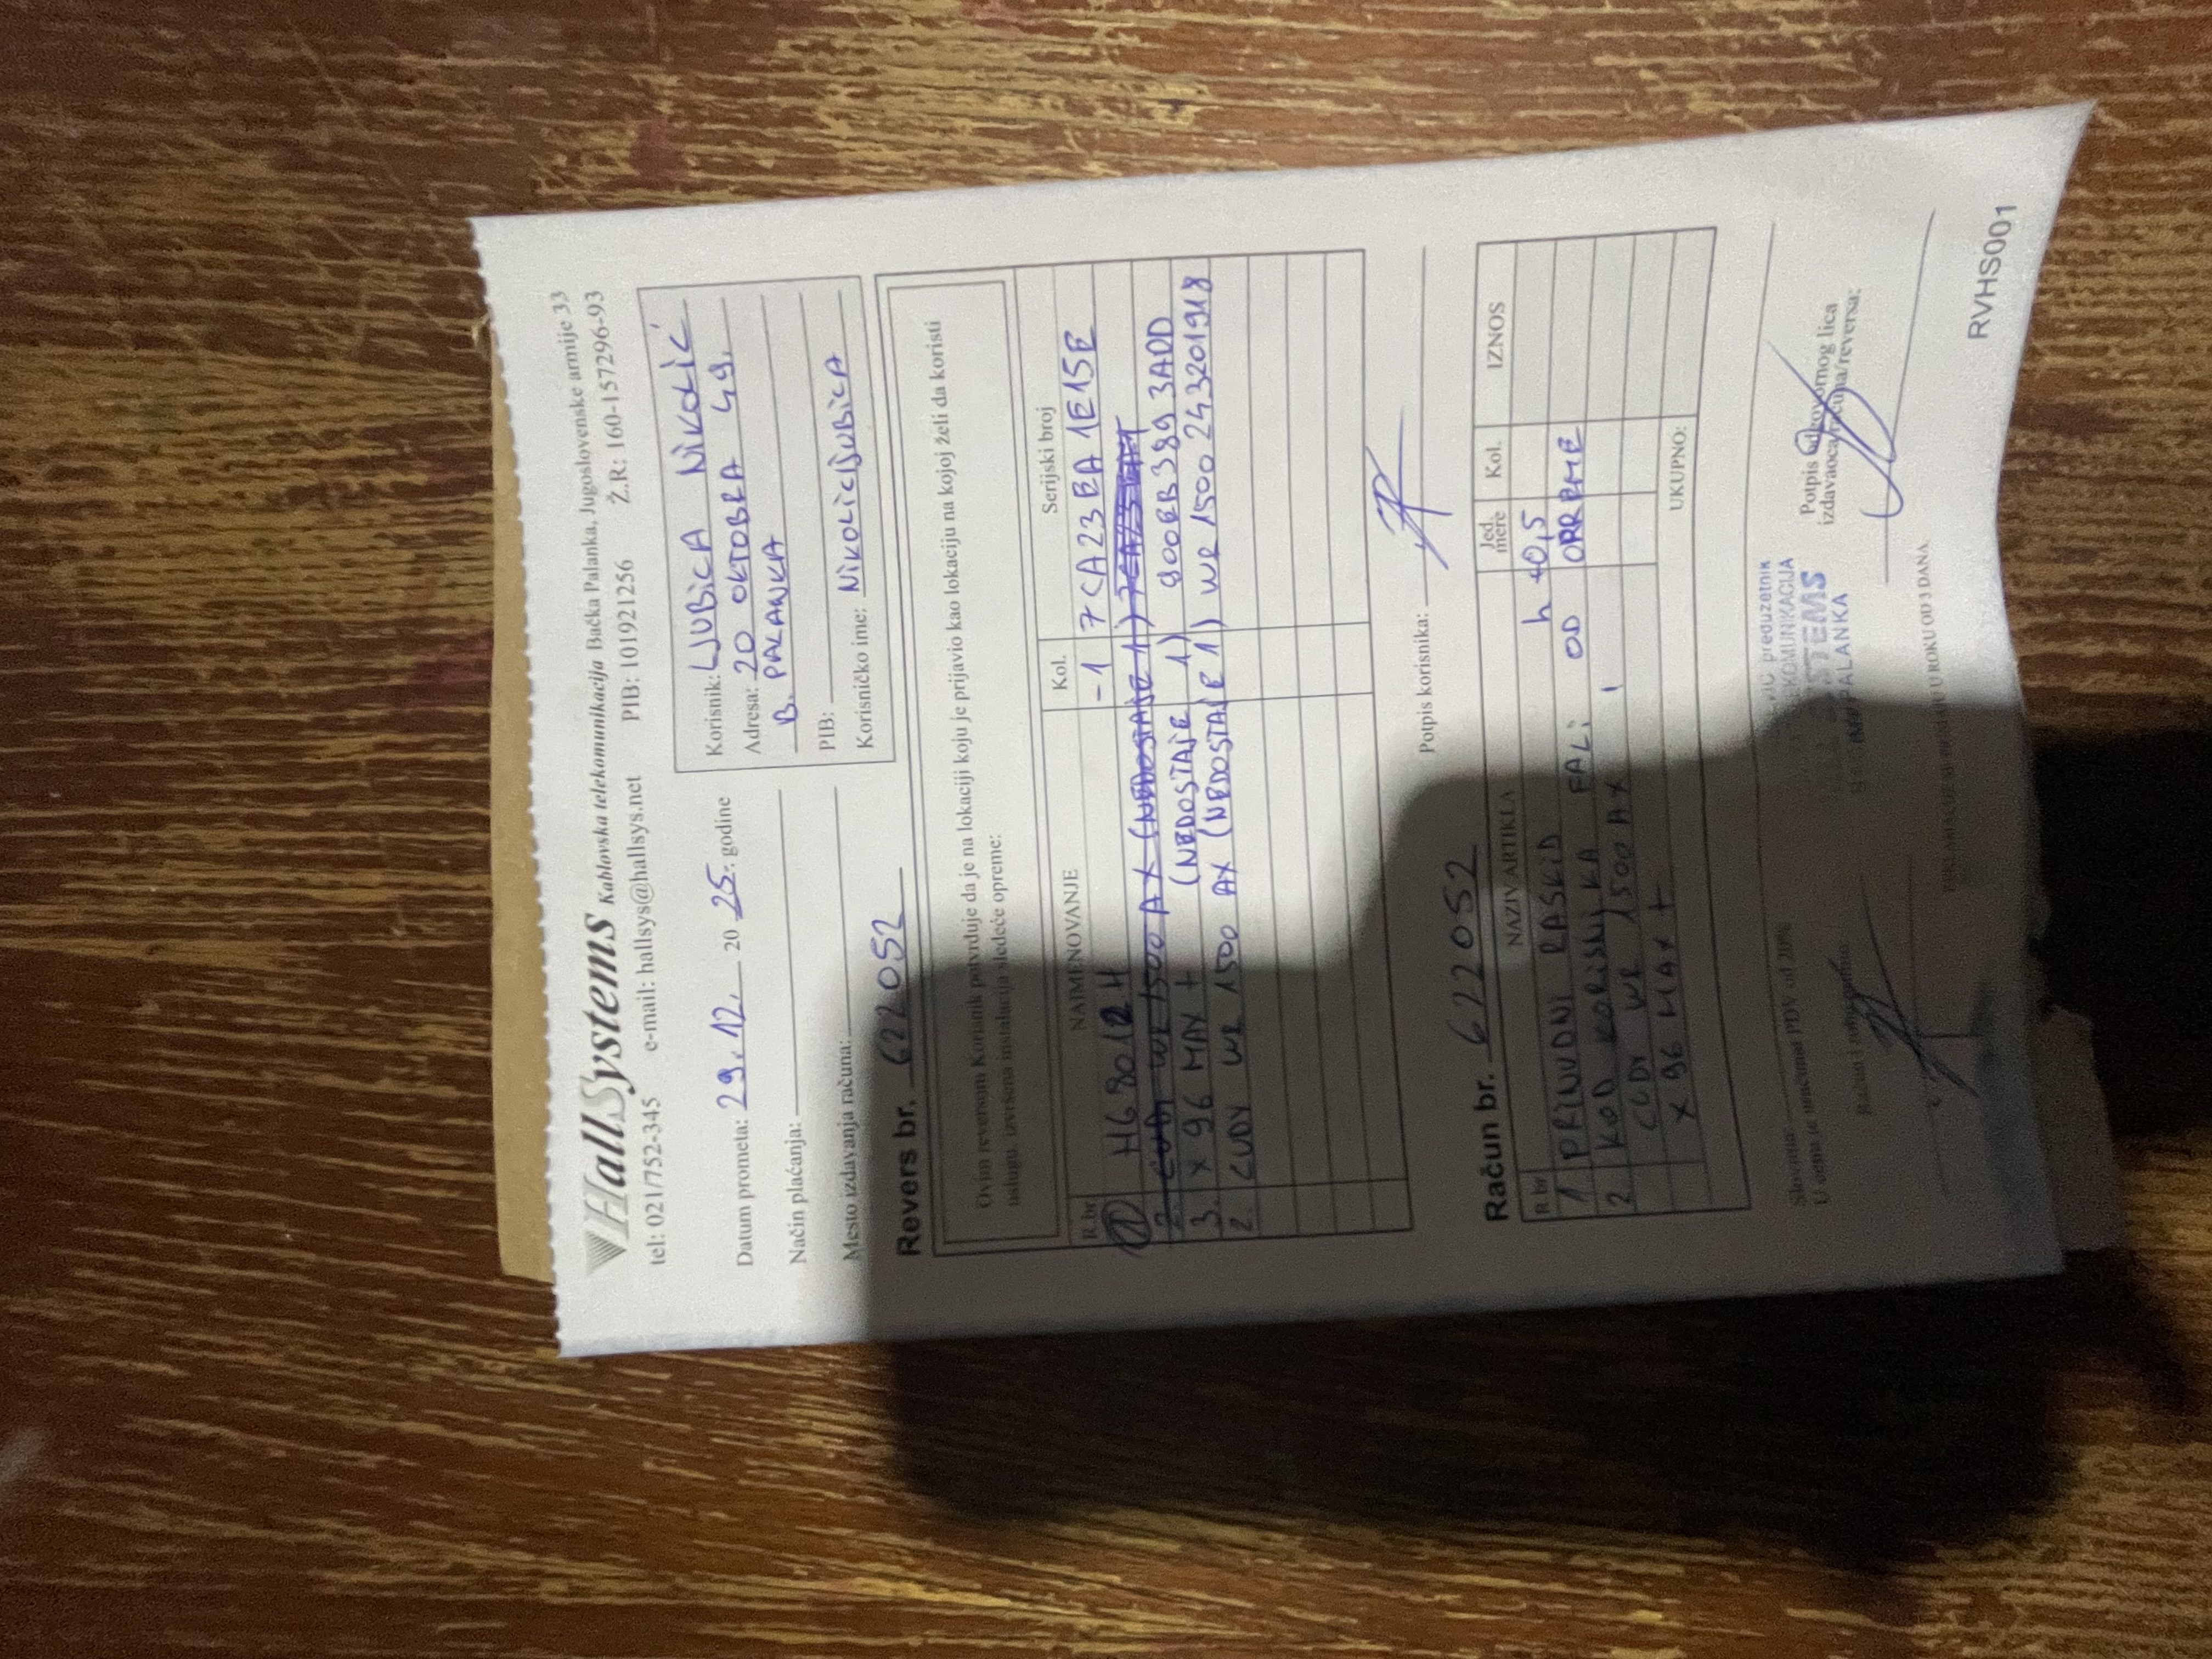 HallSystems Kablovska telekomunikacija Bačka Palanka, Jugoslovenske armije 33
tel: 021/752-345 e-mail: hallsys@hallsys.net PIB: 101921256 Ž.R: 160-157296-93
Datum prometa: 29.12. 20 25. godine
Način plaćanja:
Mesto izdavanja računa:
Korisnik: LJUBICA NIKOLIĆ
Adresa: 20 OKTOBRA 49.
B. PALANKA
PIB:
Korisničko ime: NIKOLICLJUBICA
Revers br. 622052
Ovim reversom Korisnik potvrđuje da je na lokaciji koju je prijavio kao lokaciju na kojoj želi da koristi
uslugu, izvršena instalacija sledeće opreme:
R.br NAIMENOVANJE Kol. Serijski broj
1 H6801RH -1 7CA23EA1E15E
2. CUDY WR 1500 AX (NEDOSTAJE 1)
3. X 96 MAX + (NEDOSTAJE 1) 900EB3893ADD
2. CUDY WR 1500 AX (NEDOSTAJE 1) WR 1500 243201918
Potpis korisnika:
Račun br. 622052
R.br NAZIV ARTIKLA Jed. mere Kol. IZNOS
1 PRINUDNI RASKID h 40,5
2 KOD KORISNIKA FALI OD OPREME
CUDY WR 1500 AX
X 96 MAX +
UKUPNO:
Slovima:
U cenu je uračunat PDV od 20%
PALANKA
Potpis odgovornog lica
izdavaoca računa/reversa:
RVHS001